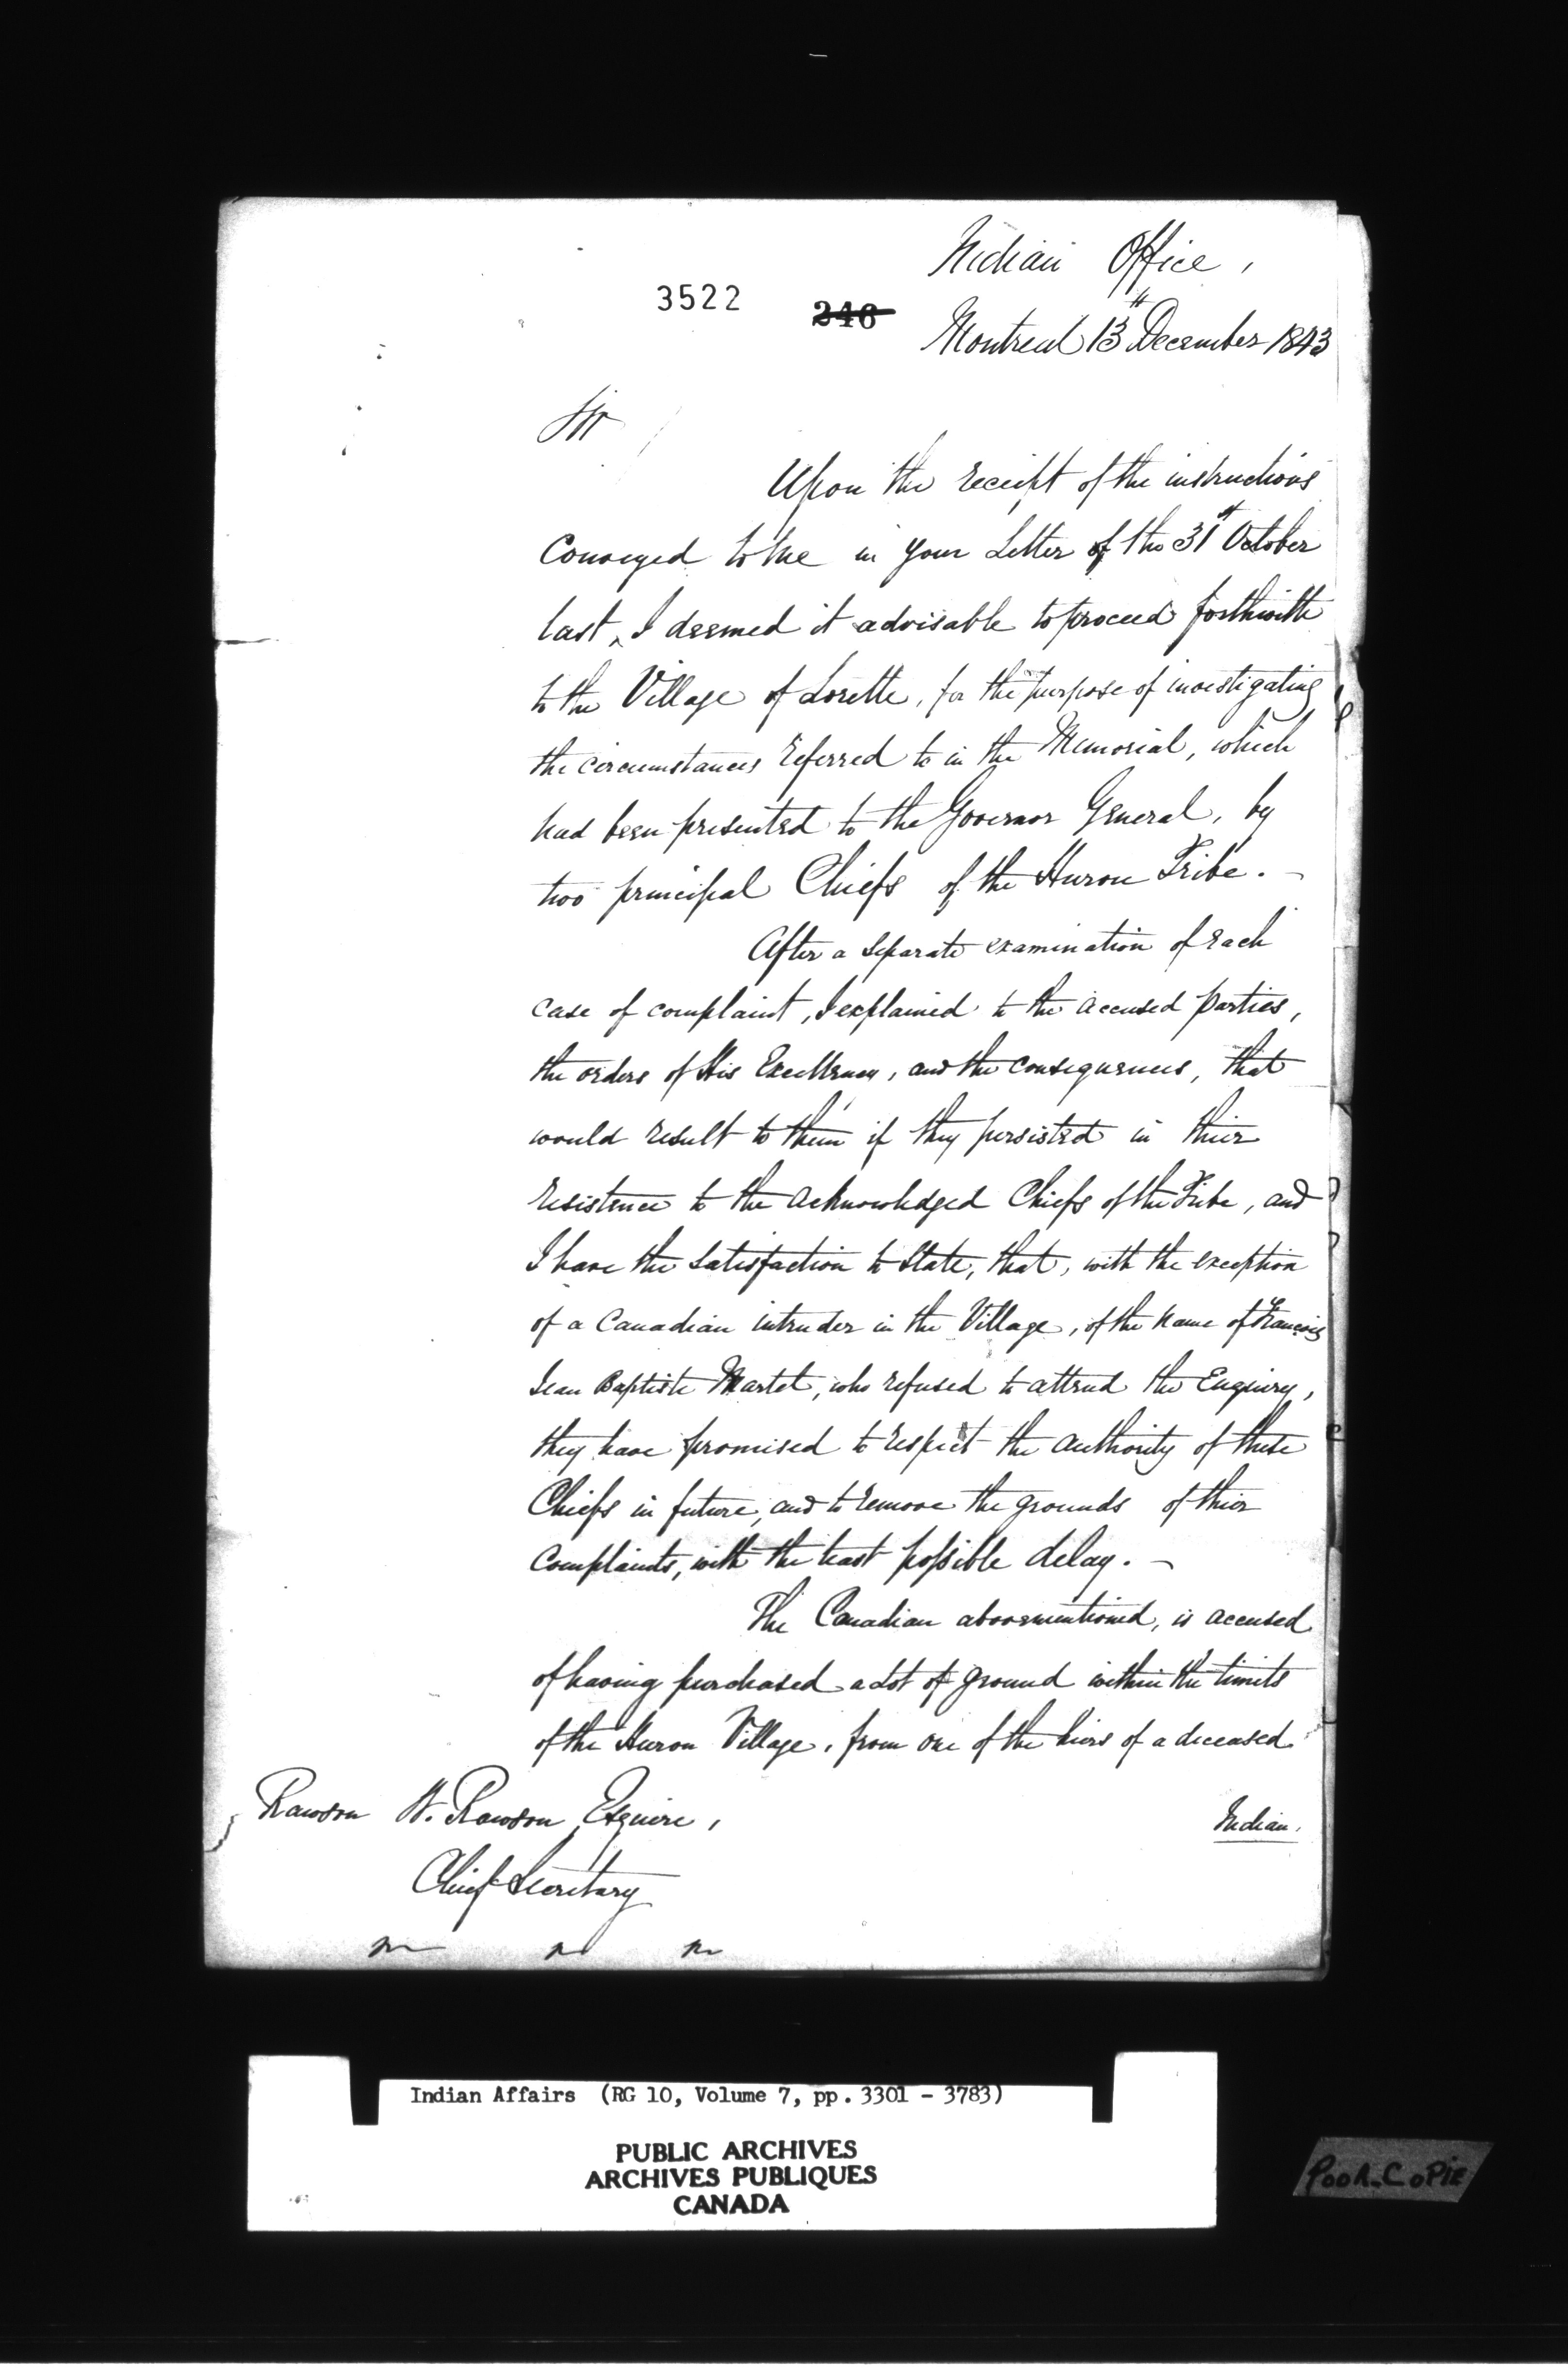 Indian Office,
3522 246
Montreal 13th December 1843
Sir
Upon the receipt of the instructions
Conveyed to me in your Letter of the 31st October
last, I deemed it advisable to proceed forthwith
to the Village of Lorette, for the purpose of investigating
the circumstances referred to in the Memorial, which
had been presented to the Governor General, by
two principal Chiefs of the Huron Tribe. -
After a separate examination of each
case of complaint, I explained to the accused parties,
the orders of His Excellency, and the consequences, that
would result to them if they persisted in thier
resistence to the acknowledged Chiefs of the Tribe, and
I have the satisfaction to state, that, with the exception
of a Canadian intruder in the Village, of the name of François
Jean Baptiste Martel, who refused to attend the Enquiry,
they have promised to respect the authority of these
Chiefs in future, and to remove the grounds of thier
complaints, with the least possible delay. -
The Canadian abovementioned, is accused
of having purchased a Lot of ground within the limits
of the Huron Village, from one of the hiers of a deceased
Indian.
Rawson W. Rawson Esquire,
Chief Secretary
Indian Affairs (RG 10, Volume 7, pp. 3301 - 3783)
PUBLIC ARCHIVES
ARCHIVES PUBLIQUES
CANADA
POOR-COPIE